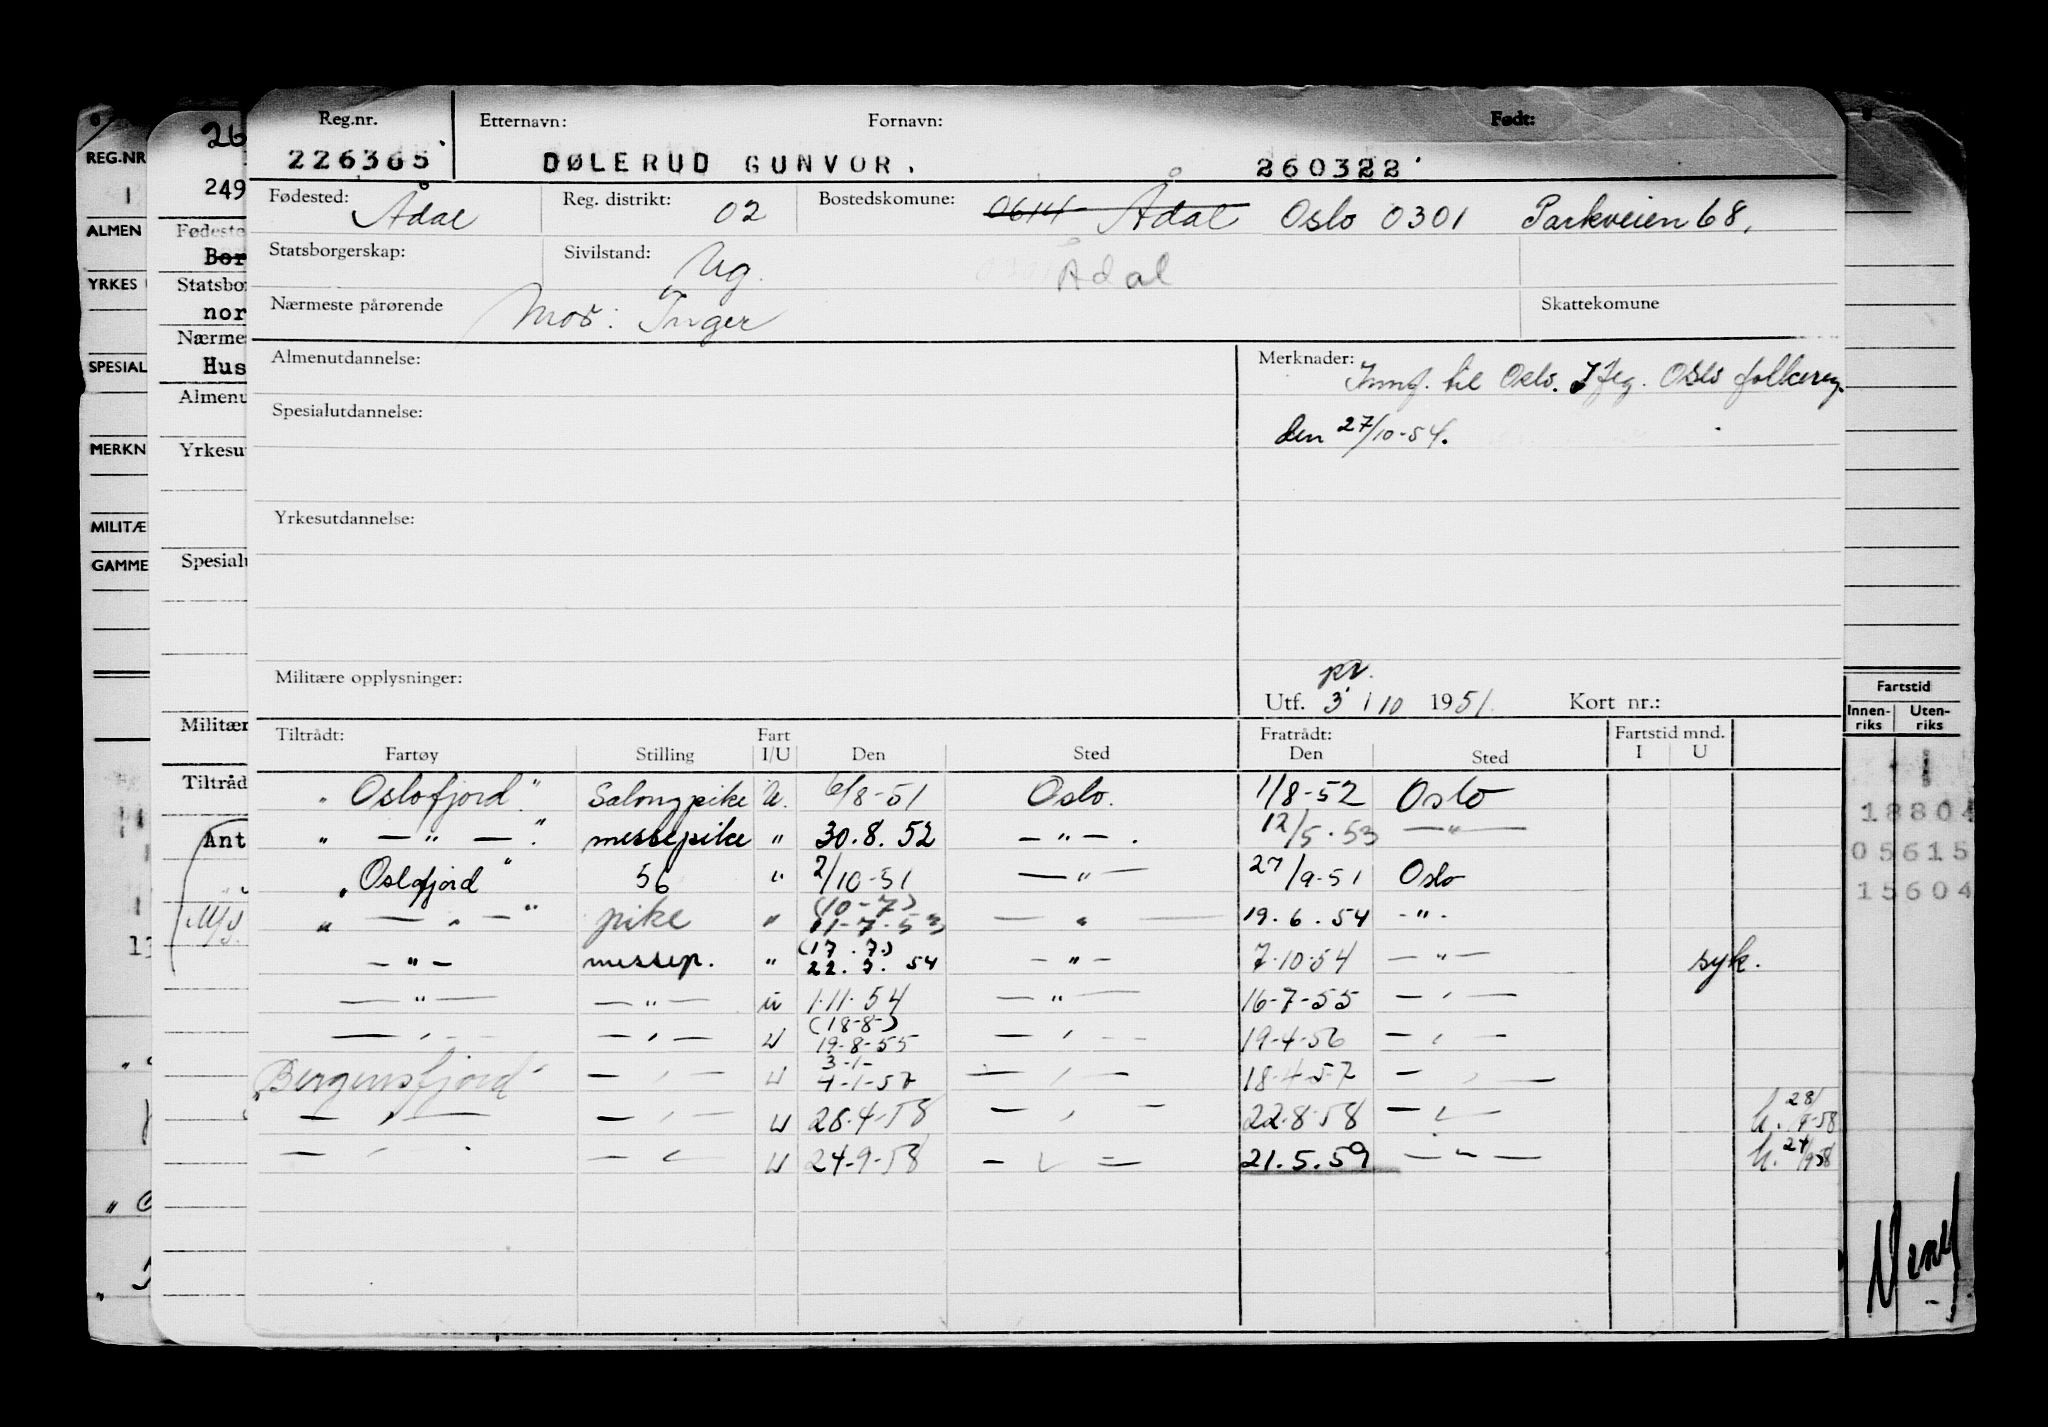 Reg.nr. Etternavn: Fornavn: Født:
226365 DØLERUD GUNVOR. 260322
Fødested: Ådal Reg. distrikt: 02 Bostedskomune: 0614 Ådal Oslo 0301 Parkveien 68.
Statsborgerskap: Sivilstand: Ug. Ådal
Nærmeste pårørende Mor: Inger Skattekomune
Almenutdannelse: Merknader: Innf. til Oslo. Oslo folkereg.
Spesialutdannelse: den 27/10-54.
Yrkesutdannelse:
Militære opplysninger: pr. Utf. 3/10 1951. Kort nr.:
Tiltrådt: Fart Fratrådt: Fartstid mnd.
Fartøy Stilling I/U Den Sted Den Sted I U
"Oslofjord" Salongpike U. 6/8-51 Oslo. 1/8-52 Oslo
" — " — " messepike " 30.8.52 — " — . 12/5.53 — " —
"Oslofjord" 56 " 2/10-51 — " — 27/9-51 Oslo
" — " — " pike " (10-7) 11-7-53 — " — 19.6.54 - " -
— " — messep. " (17.7.) 22.7.54 — " — 7-10-54 — " — syk.
— " — — " — u 1.11.54 — " — 16-7-55 — " —
— " — — " — u (18-8-) 19-8-55 — " — 19-4-56 — " —
"Bergensfjord" — " — u 3-1- 4-1-57 — " — 18-4-57 — " —
— " — — " — u 28-4-58 — " — 22-8-58 — " — h. 28/9-58
— " — — " — u 24-9-58 — " — 21.5.59 — " — h. 24/9 58
REG.NR
ALMEN
YRKES
SPESIAL
MERKN
MILITÆ
GAMME
26
249
Fødeste
Bor
Statsbo
nor
Nærme
Hus
Almenu
Yrkesu
Spesial
Militær
Tiltråd
Ant
M/S.
Fartstid
Innen-riks Uten-riks
18804
05615
15604